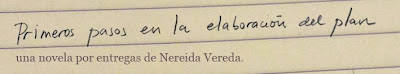 Primeros pasos en la elaboración del plan
una novela por entregas de Nereida Vereda.